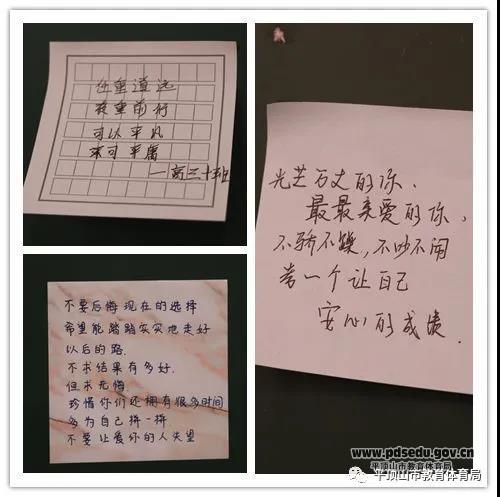 任重道远
负重前行
可以平凡
可平庸
——高三十班
光芒万丈的你、
最最亲爱的你,
不骄不躁,不吵不闹
考一个让自己
安心的成绩.
不要后悔现在的选择
希望能踏踏实实地走好
以后的路.
不求结果有多好.
但求无悔.
珍惜你们还拥有很多时间
多为自己拼一拼
不要让爱你的人失望
www.pdsedu.gov.cn
平顶山市教育体育局
平顶山市教育体育局